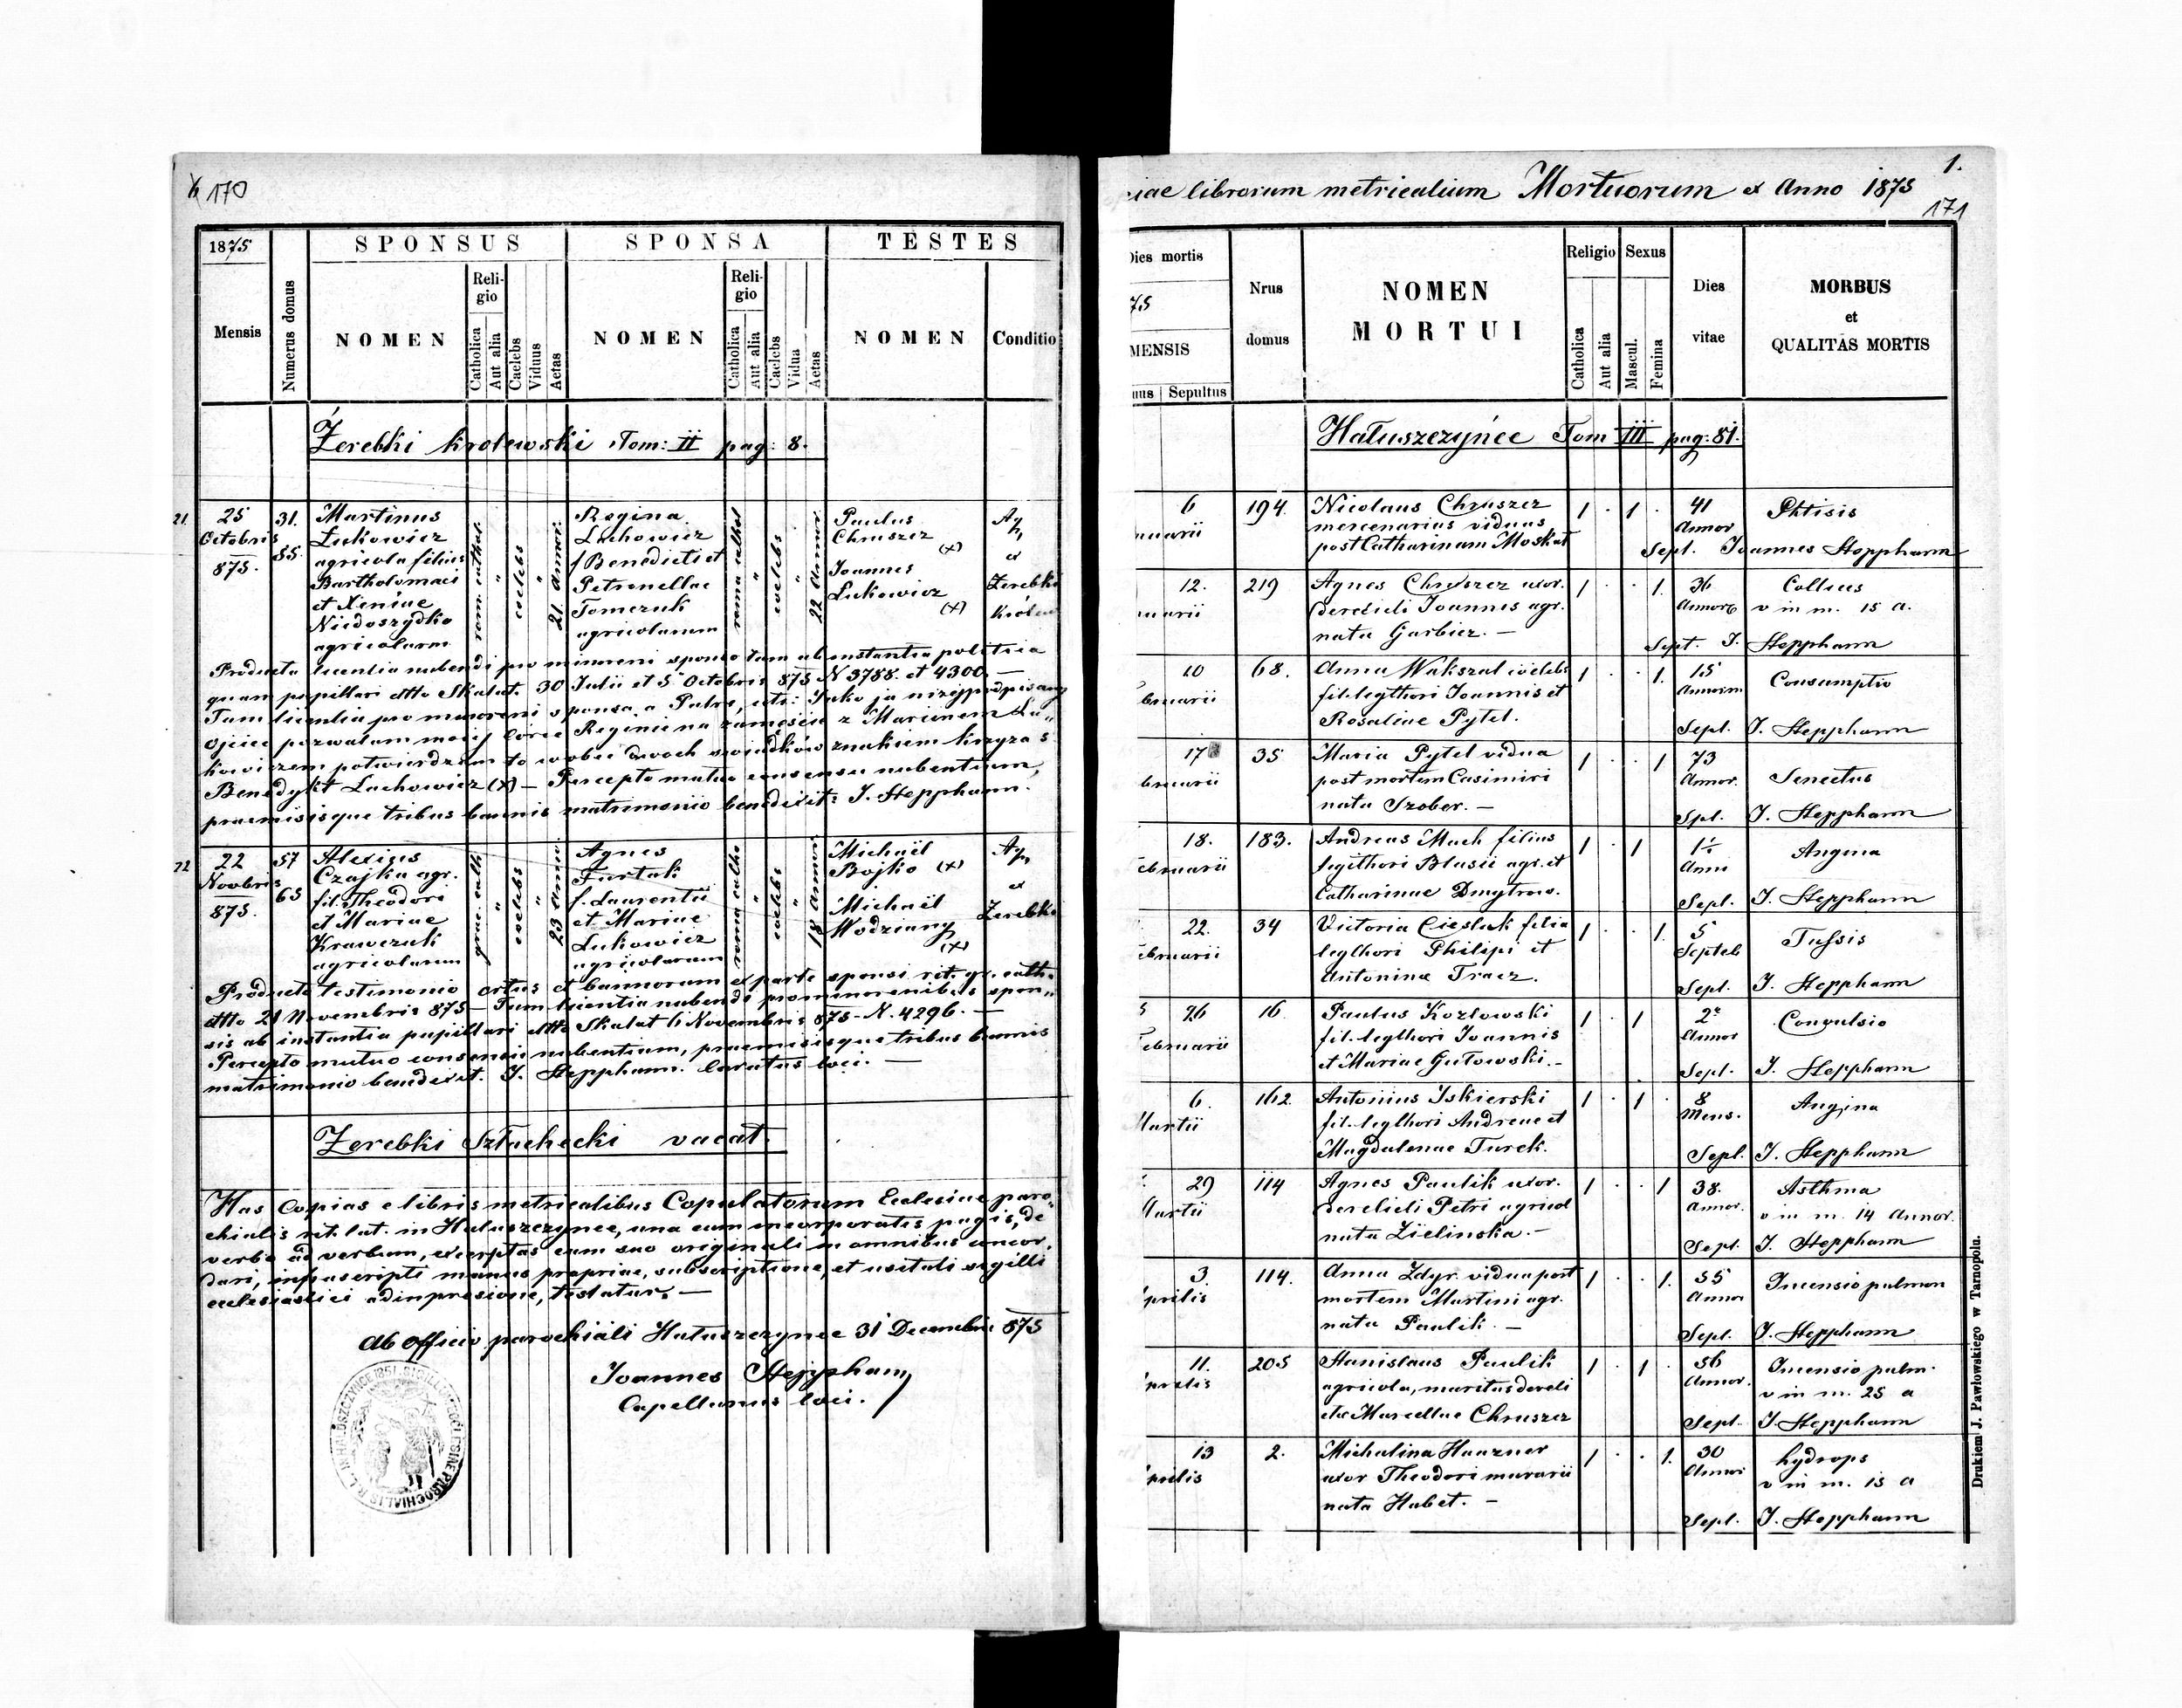 170
1875
SPONSUS
SPONSA
TESTES
Mensis
Numerus domus
NOMEN
Religio
Catholica
Aut alia
Caelebs
Viduus
Aetas
NOMEN
Religio
Catholica
Aut alia
Caelebs
Vidua
Aetas
NOMEN
Conditio
Żerebki krolewski Tom: II pag: 8.
21.
25
Octobris
875.
31.
85.
Martinus
Łukowicz
agricola filius
Bartholomaei
et Xeniae
Niedoszydko
agricolarum
rom. cathol.
"
coelebs
"
21 Annor.
Regina
Lachowicz
f Benedicti et
Petronellae
Tomczuk
agricolarum
roma cathol
"
coelebs
"
22 Annor
Paulus
Chruszcz
(x)
Joannes
Łukowicz
(x)
Ag
ex
Zerebki
Producta licentia nubendi pro minoreni sponso tam ab instantia politica
quam pupillari ddto Skałat. 30 Julii et 5 Octobris 875 N 3788. et 4300. —
Tum licentia pro minoreni sponsa a Patre, uti: Jako ja niżejpodpisany
Ojciec pozwalam mojej Corce Reginie na zamęście z Marcinem Łu„
kowiczem potwierdzam to wobec dwoch swiadków znakiem krzyża s
Benedykt Lachowicz (x) — Percepto mutuo consensu nubentium,
praemisisque tribus bannis matrimonio benedixit: J. Hepphann.
22.
22
Novbris
875.
57
63
Alexius
Czajka agr.
fil. Theodori
et Mariae
Krawczuk
agricolarum
graec. cath
"
coelebs
"
23 annor
Agnes
Furtak
f. Laurentii
et Mariae
Łukowicz
agricolarum
roma catho
"
coelebs
"
18 annor
Michaël
Bojko (x)
Michaël
Wodziany
(x)
Ag
ex
Zerebki
Producto testimonio ortus et bannorum ex parte sponsi rit. gr. cath.
ddto 21 Novembris 875 — Tum licentia nubendi pro minorenibus spon„
sis ab instantia pupillari ddto Skałat 6 Novembris 875 - N. 4296. —
Percepto mutuo consensu nubentium, praemisisque tribus bannis
matrimonio benedixit. J. Hepphann. Curatus loci. —
Zerebki Szlachecki vacat.
Has Copias e libris metricalibus Copulatorum Ecclesiae paro„
chialis rit. lat. in Hałuszczynce, una cum incorporatis pagis, de
verbo ad verbum, excerptas cum suo originali in omnibus concor„
dari, infrascripti manus propriae, subscriptione, et usitati sigilli
ecclesiastici adinpresione, testatur. —
Ab officio parochiali Hałuszczynce 31 Decembris 875
Joannes Hepphann
Capellanus loci.
1.
iae librorum metricalium Mortuorum ex Anno 1875
171
Dies mortis
75
MENSIS
nus
Sepultus
Nrus
domus
NOMEN
MORTUI
Religio
Catholica
Aut alia
Sexus
Mascul.
Femina
Dies
vitae
MORBUS
et
QUALITAS MORTIS
Hałuszczyńce Tom III pag: 81.
6
nuarii
194.
Nicolaus Chruszcz
mercenarius viduus
post Catharinam Moskał
1 . 1 .
41
Annor
Phtisis
Sept. Joannes Hepphann
12.
nuarii
219
Agnes Chruszcz uxor.
derelicti Joannis agr.
nata Garbicz. —
1 . . 1.
36
Annor
Collicus
v in m. 15 a.
Sept. J. Hepphann
10
bruarii
68.
Anna Wakszal coelebs
fil. legthori Joannis et
Rosaliae Pytel.
1 . . 1.
15
Annorum
Consumptio
Sept. J. Hepphann
17
bruarii
35
Maria Pytel vidua
post mortem Casimiri
nata Szober. —
1 . . 1
73
Annor.
Senectus
Spt. J. Hepphann
18.
ebruarii
183.
Andreas Mach filius
legithori Blasii agr. et
Catharinae Dmytrow.
1 . 1
1½
Anni
Angina
Sept. J. Hepphann
22.
ebruarii
34
Victoria Cieslak filia
legthori Philipi et
Antoninae Tracz.
1 . . 1.
5
Tussis
Sept. J. Hepphann
26
ebruarii
16
Paulus Kozłowski
fil. legthori Joannis
et Mariae Gutowski. —
1 . 1
2
Annor
Convulsio
Sept. J. Hepphann
6.
Martii
162.
Antonius Iskierski
fil. legthori Andreae et
Magdalenae Turek.
1 . 1 .
8
Mens.
Angina
Sept. J. Hepphann
29
Martii
114
Agnes Paulik uxor.
derelicti Petri agricol
nata Zielinska. —
1 . . 1
38.
Annor.
Asthma
v in m. 14 Annor.
Sept. J. Hepphann
3.
prilis
114.
Anna Zdyr. vidua post
mortem Martini agr.
nata Paulik. —
1 . . 1.
55
Annor
Incensio pulmon
Sept. J. Hepphann
11.
prilis
205
Stanislaus Paulik
agricola, maritus dereli
ctae Marcellae Chruszcz
1 . 1 .
56
Annor.
Incensio pulm.
v in m. 25 a
Sept. J. Hepphann
13
prilis
2.
Michalina Haazner
uxor Theodori murarii
nata Habet. —
1 . . 1.
30
Annor
hydrops
v in m. 15 a
Sept. J. Hepphann
Drukiem J. Pawłowskiego w Tarnopolu.